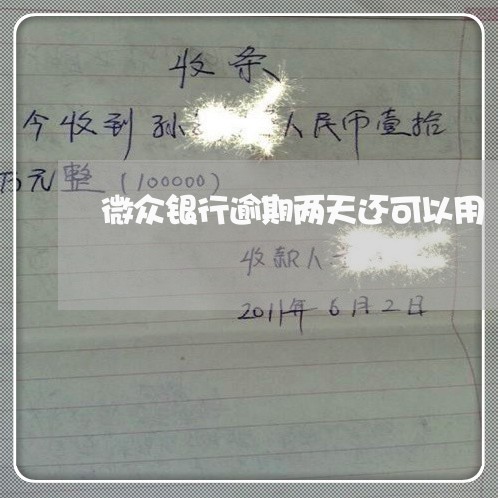 收条
今收到孙人民币壹拾
万元整（100000）
微众银行逾期两天还可以用
收款人
2011年6月2日